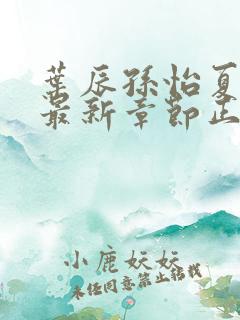 葉辰孫怡夏
最新章節正
小鹿妖妖
未经同意禁止转载